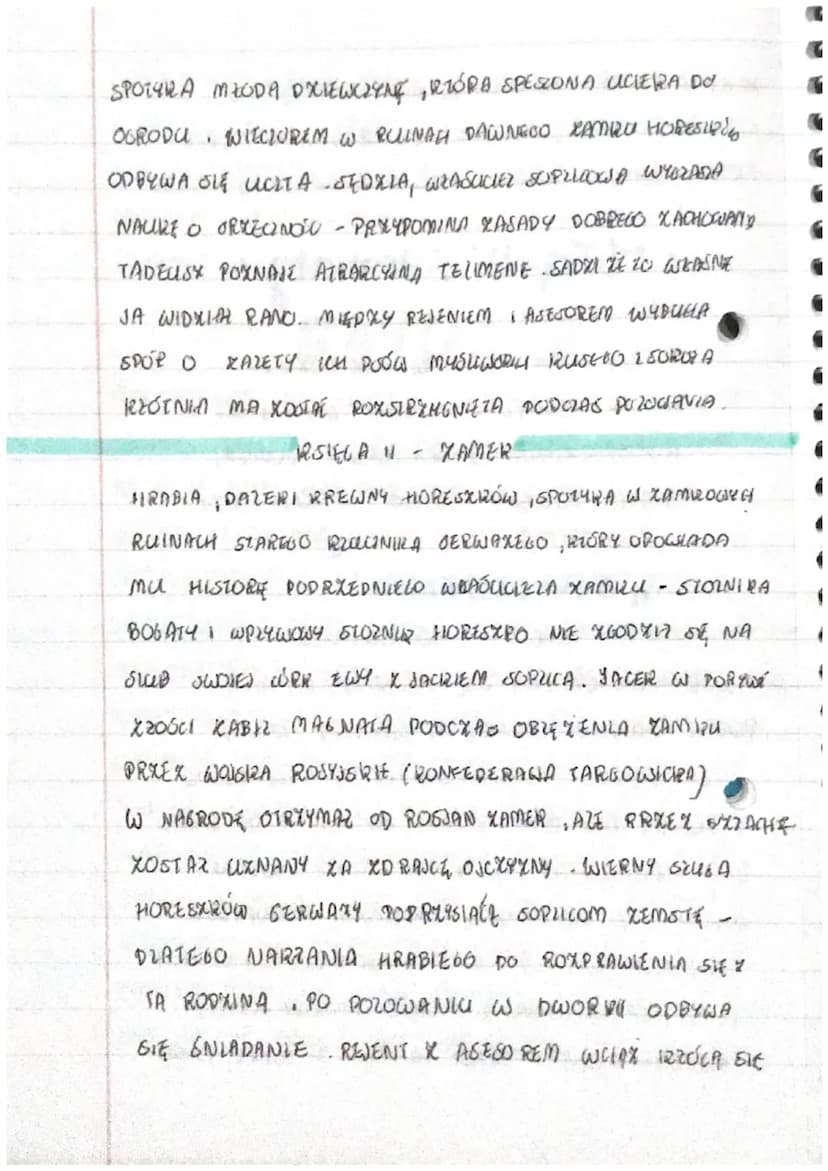 SPOTYKA MŁODA DZIEWCZYNĘ, KTÓRA SPESZONA UCIEKA DO
OGRODU. WIECZOREM W RUINAH DAWNEGO ZAMKU HORESZKÓW
ODBYWA SIĘ UCZTA. SĘDZIA, WŁAŚCICIEL SOPLICOWA WYGŁASZA
NAUKĘ O GRZECZNOŚCI - PRZYPOMINA ZASADY DOBREGO ZACHOWANIA
TADEUSZ POZNAJE ATRAKCYJNA TELIMENE. SADZI ŻE TO WŁAŚNIE
JA WIDZIAŁ RANO. MIĘDZY REJENTEM I ASESOREM WYBUCHA
SPÓR O ZALETY ICH PSÓW MYŚLIWSKICH KUSEGO I SOKOŁA
KŁÓTNIA MA ZOSTAĆ ROZSTRZYGNIĘTA PODCZAS POLOWANIA.
KSIĘGA II - ZAMEK
HRABIA, DALEKI KREWNY HORESZKÓW, SPOTYKA W ZAMKOWYCH
RUINACH STAREGO KLUCZNIKA GERWAZEGO, KTÓRY OPOWIADA
MU HISTORIĘ POPRZEDNIEGO WŁAŚCICIELA ZAMKU - STOLNIKA
BOGATY I WPŁYWOWY STOLNIK HORESZKO NIE ZGODZIŁ SIĘ NA
ŚLUB SWOJEJ CÓRKI EWY Z JACKIEM SOPLICA. JACEK W PORYWIE
ZŁOŚCI ZABIŁ MAGNATA PODCZAS OBLĘŻENIA ZAMKU
PRZEZ WOJSKA ROSYJSKIE. (KONFEDERACJA TARGOWICKA)
W NAGRODĘ OTRZYMAŁ OD ROSJAN ZAMEK, ALE PRZEZ SZLACHTĘ
ZOSTAŁ UZNANY ZA ZDRAJCĘ OJCZYZNY. WIERNY SŁUGA
HORESZKÓW GERWAZY POPRZYSIĄGŁ SOPLICOM ZEMSTĘ -
DLATEGO NAKŁANIA HRABIEGO DO ROZPRAWIENIA SIĘ Z
TA RODZINA. PO POLOWANIU W DWORKU ODBYWA
SIĘ ŚNIADANIE. REJENT Z ASESOREM WCIĄŻ KŁÓCĄ SIĘ